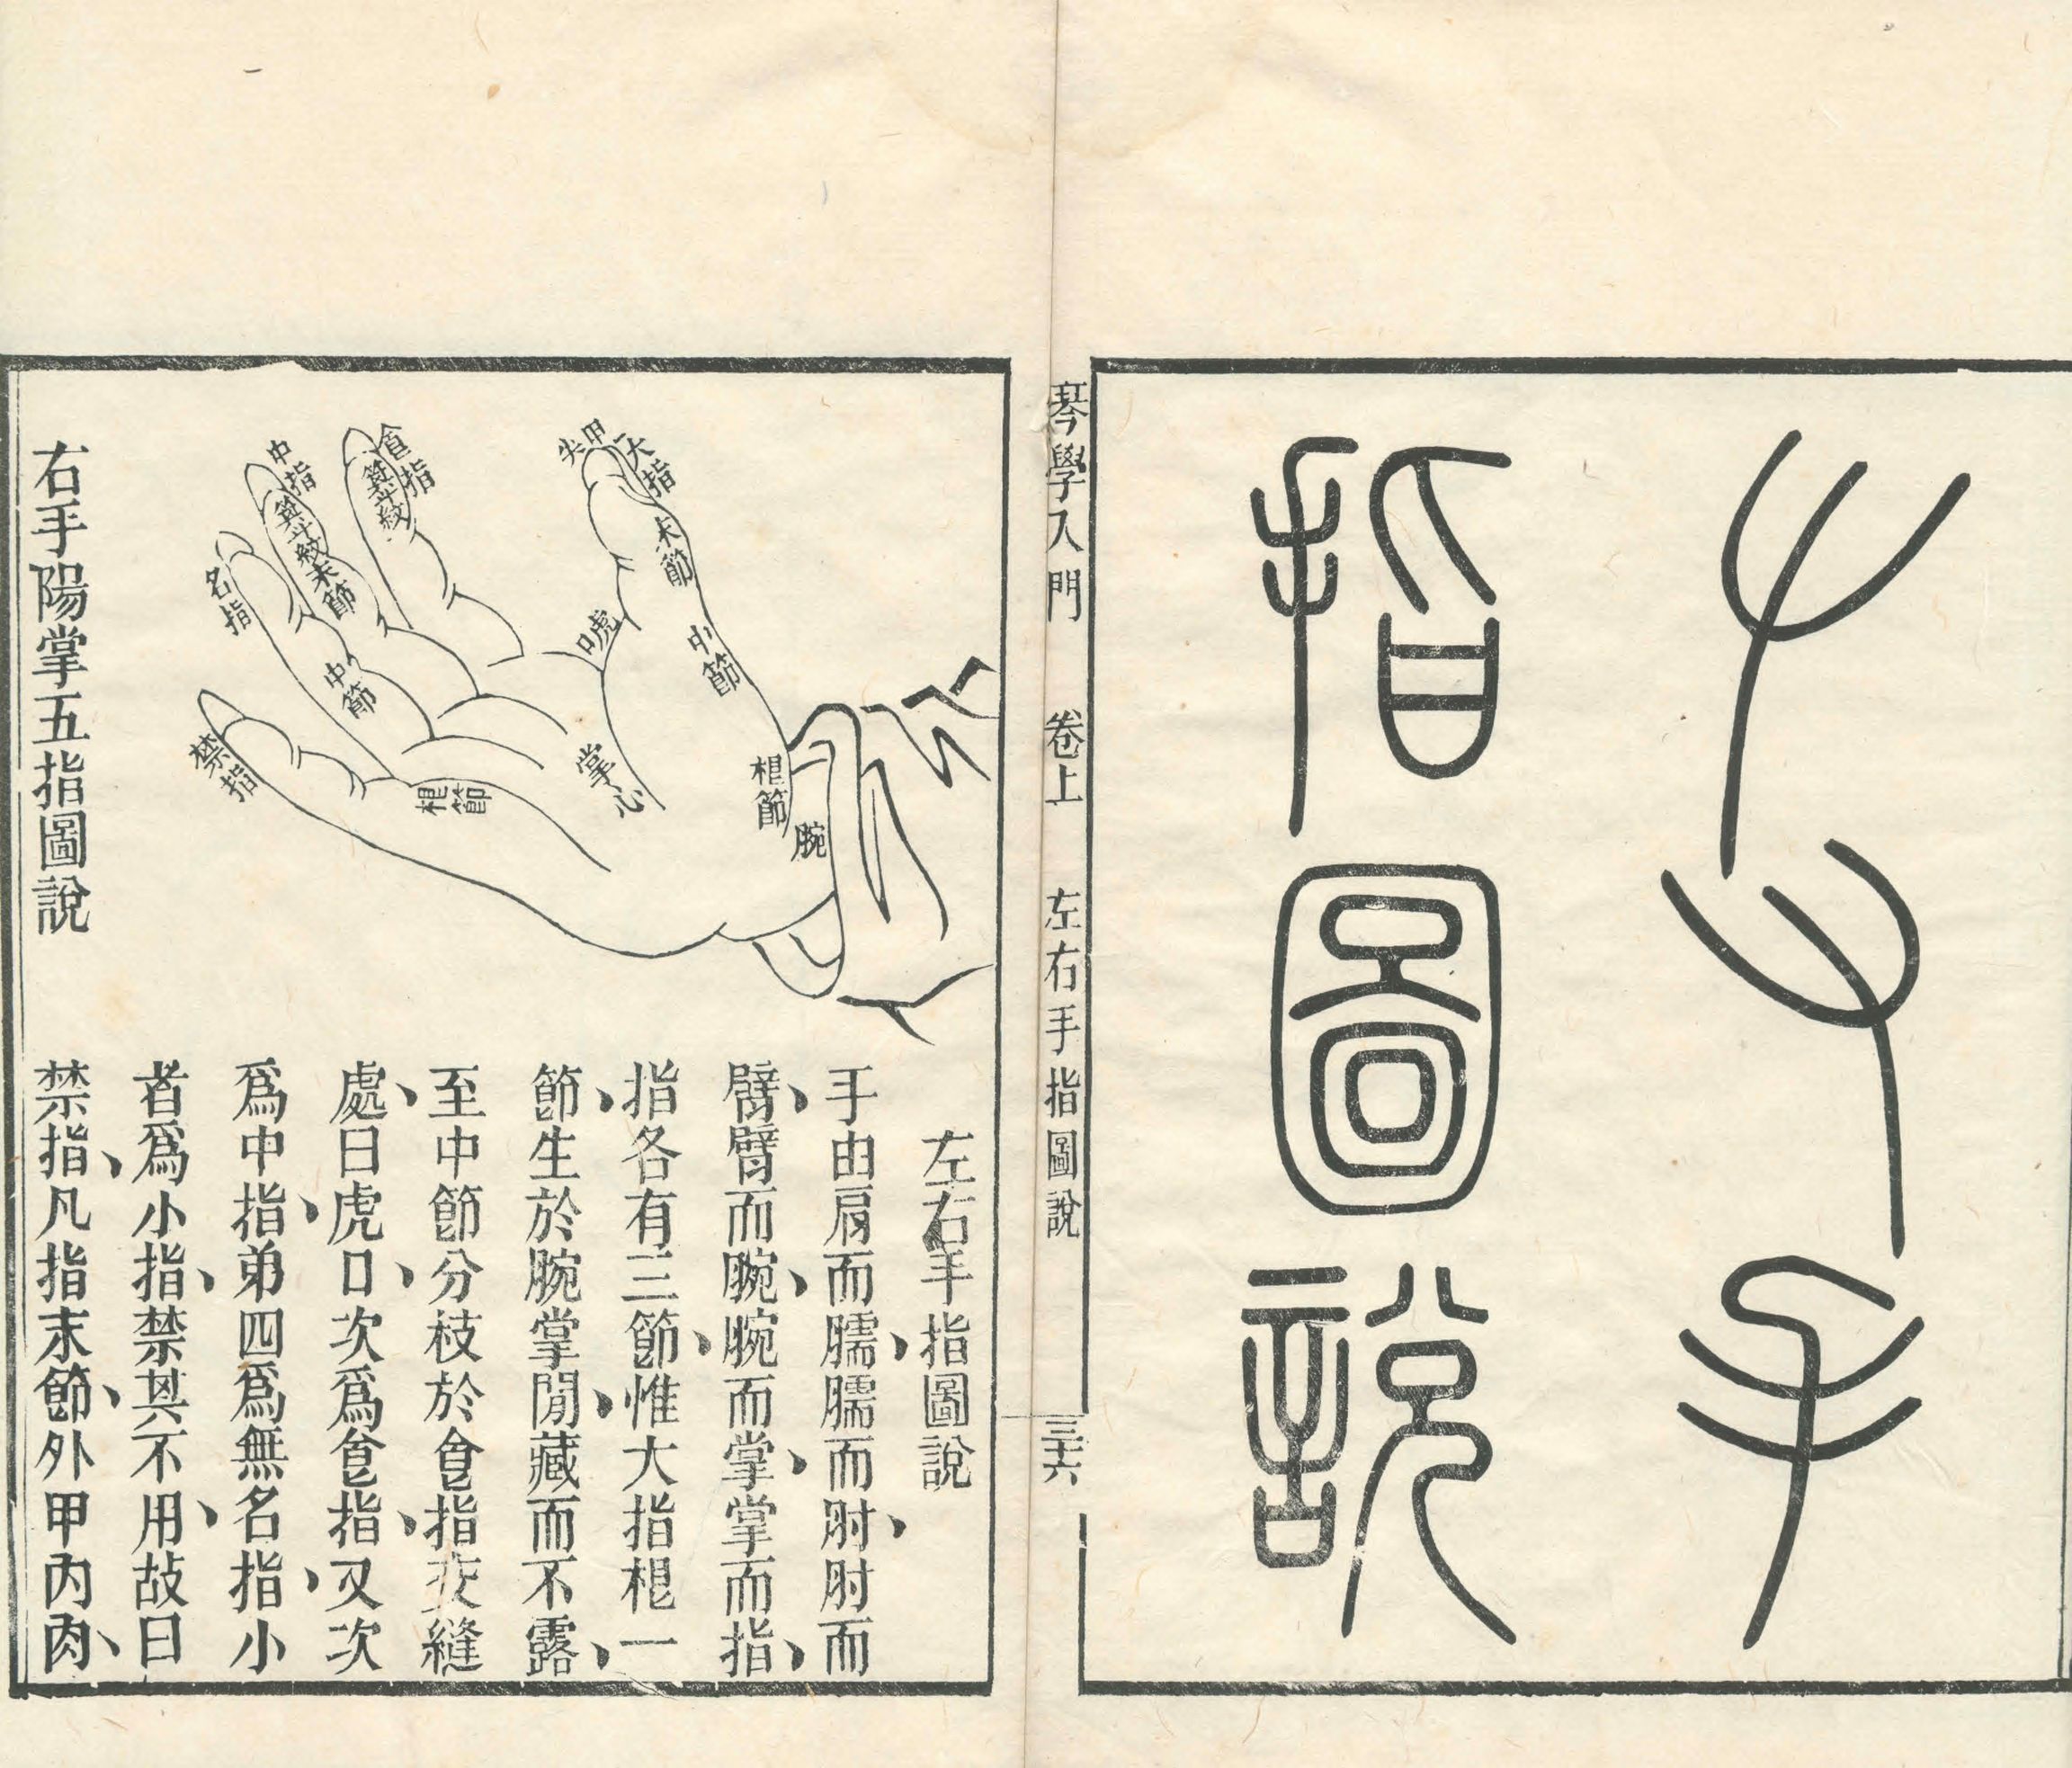 𠂇又手
指圖說
琴學入門 卷上 左右手指圖說 三十六
左右手指圖說
手由肩而臑、臑而肘、肘而
臂、臂而腕、腕而掌、掌而指、
指各有三節、惟大指根一
節、生於腕掌閒、藏而不露、
至中節分枝於食指交縫
處、曰虎口、次爲食指、又次
爲中指、弟四爲無名指、小
者爲小指、禁其不用、故曰
禁指、凡指末節、外甲內肉、
大指
甲尖
末節
中節
根節
腕
虎口
掌心
食指
箕斗紋
中指
箕斗紋
末節
中節
根節
名指
禁指
右手陽掌五指圖說